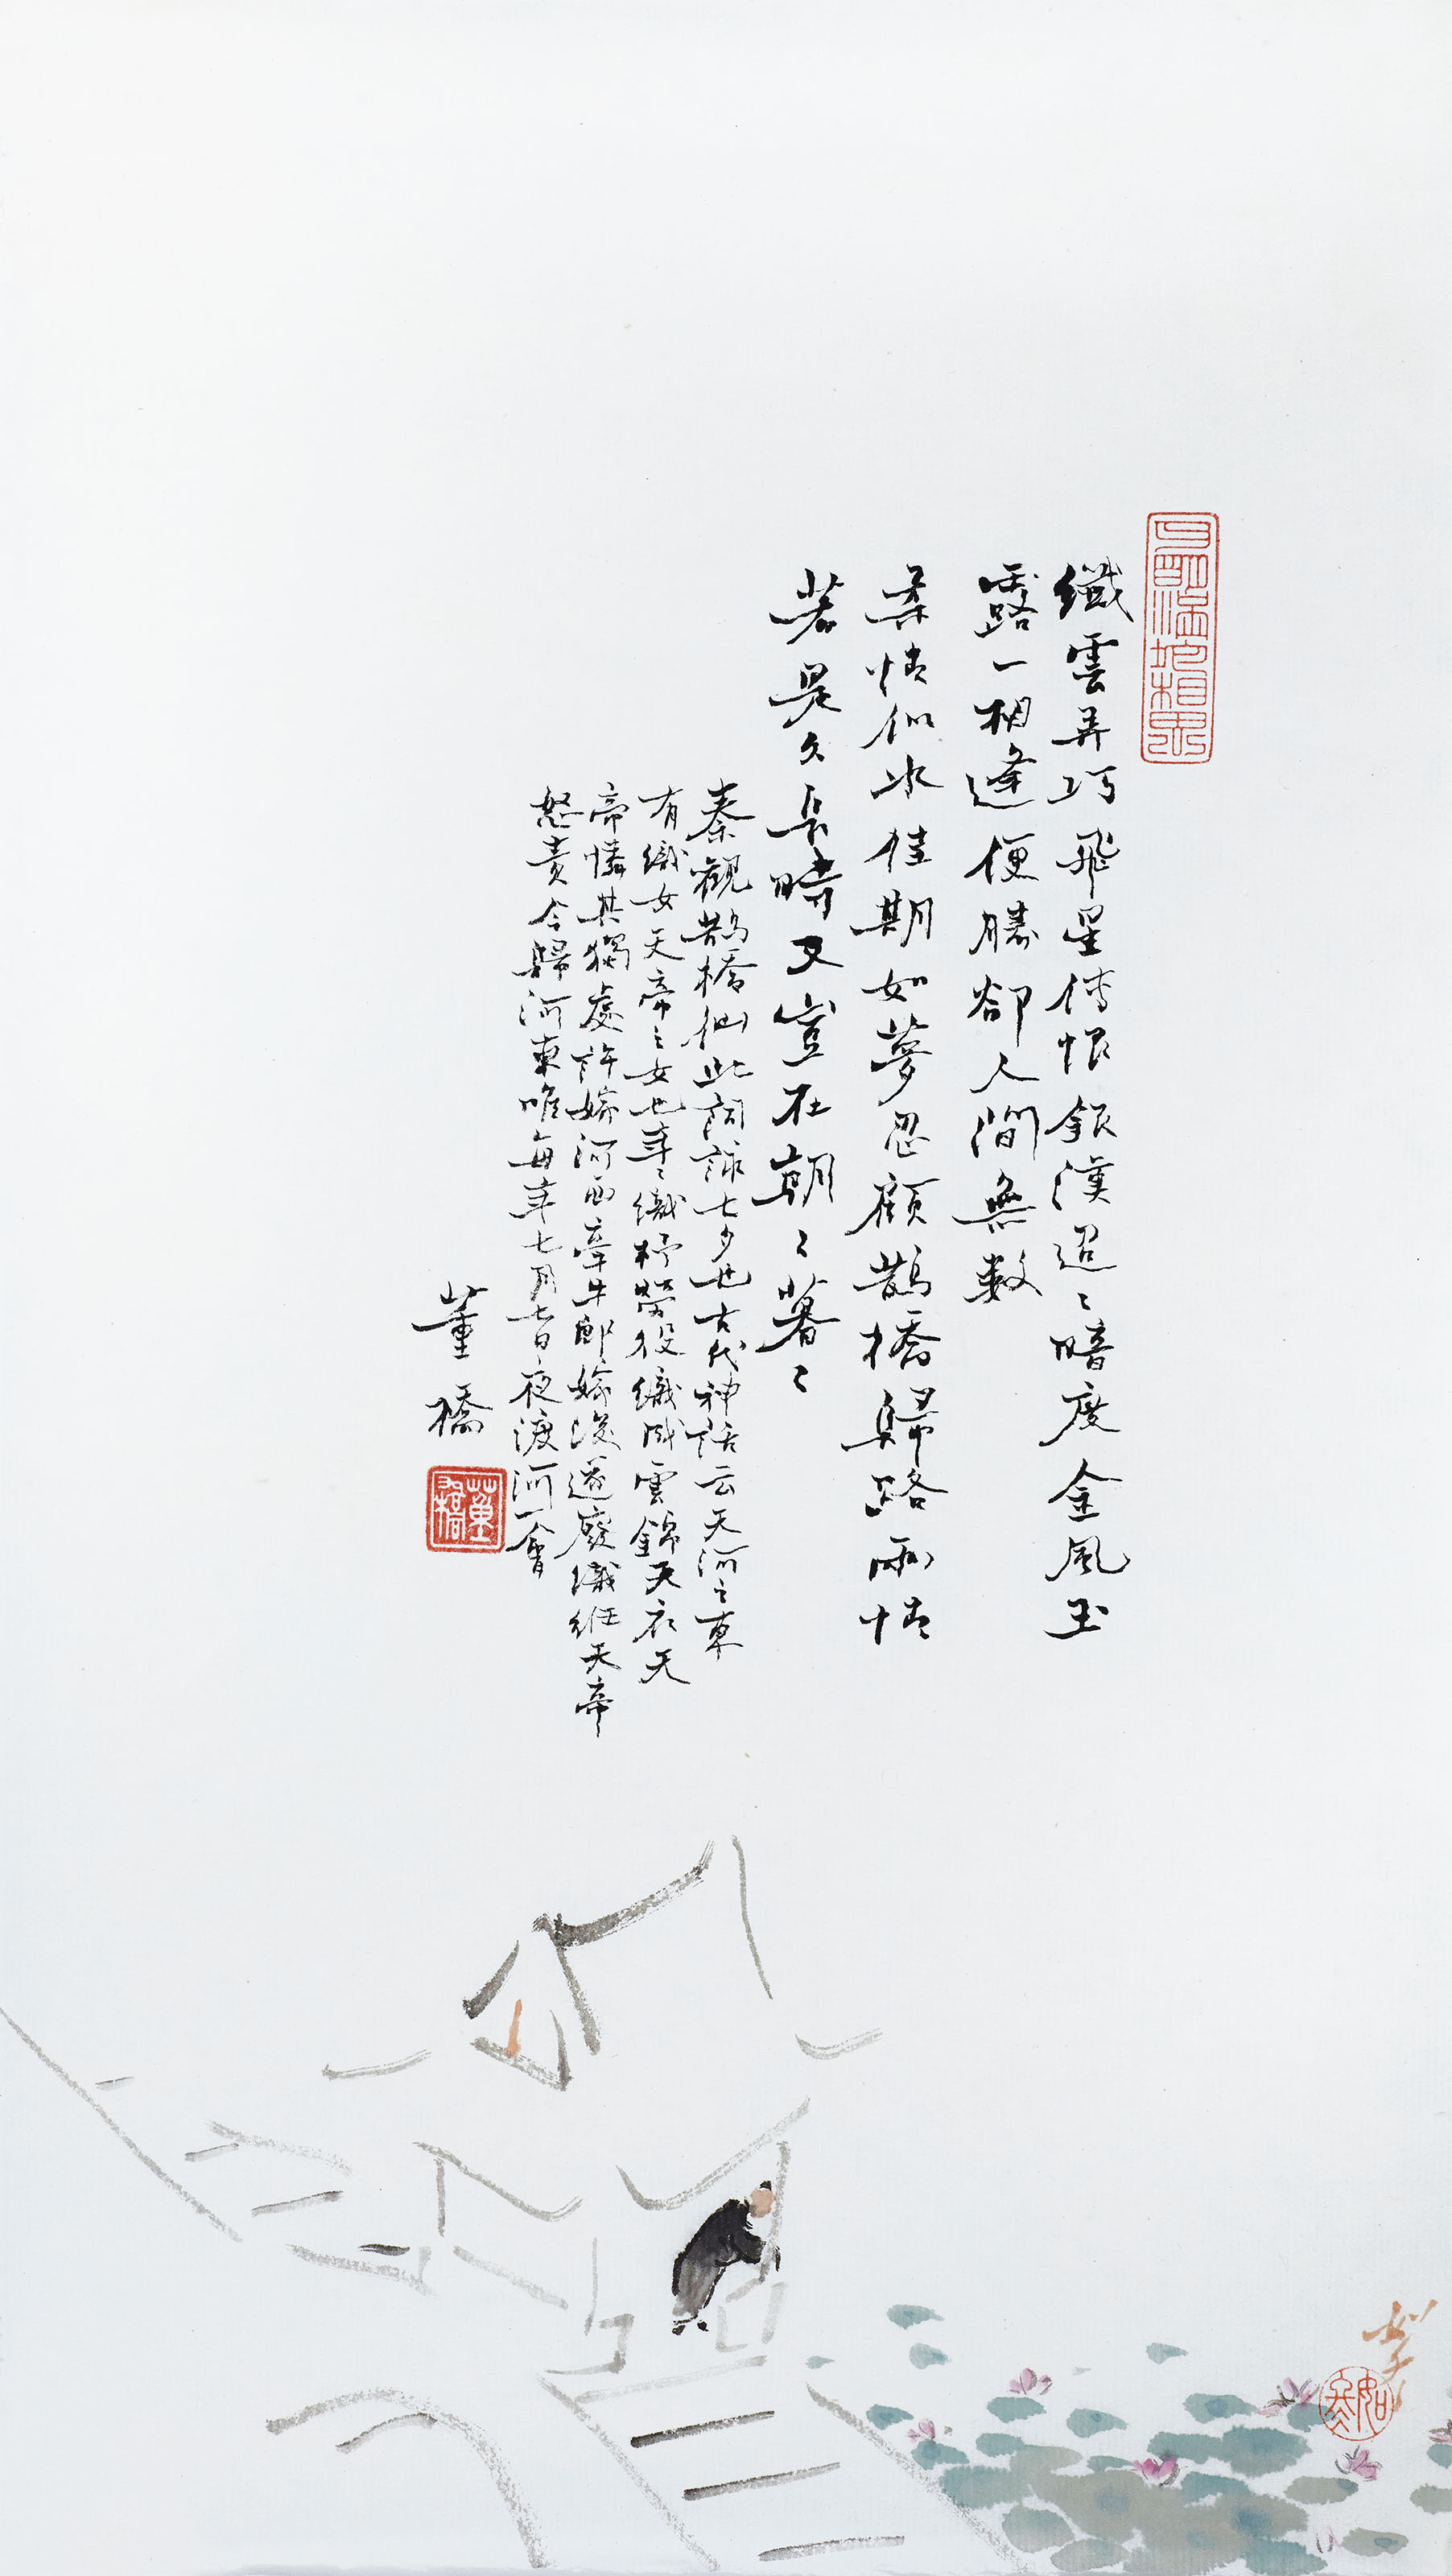 纖雲弄巧飛星傳恨銀漢迢〻暗度金風玉
露一相逢便勝卻人間無數
柔情似水佳期如夢忍顧鵲橋歸路兩情
若是久長時又豈在朝〻暮〻
秦觀鵲橋仙此詞詠七夕也古代神話云天河之東
有織女天帝之女也年〻織杼勞役織成雲錦天衣天
帝憐其獨處許嫁河西牽牛郎嫁後遂廢織紝天帝
怒責令歸河東唯每年七月七日夜渡河一會
董橋
董橋